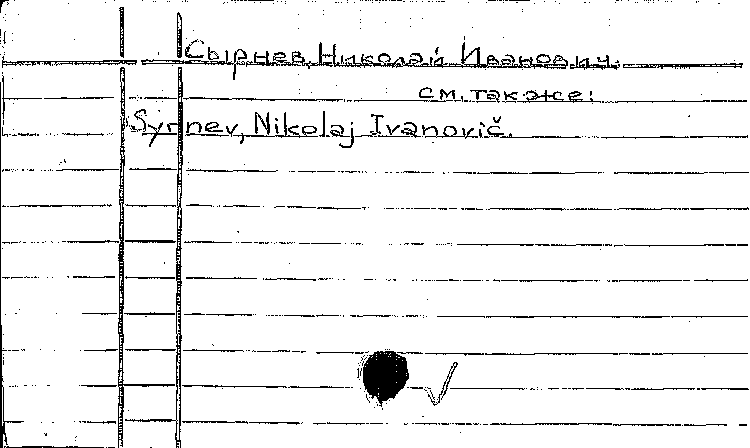 Сырнев, Николай Иванович.
см. также:
Syrnev, Nikolaj Ivanovič.